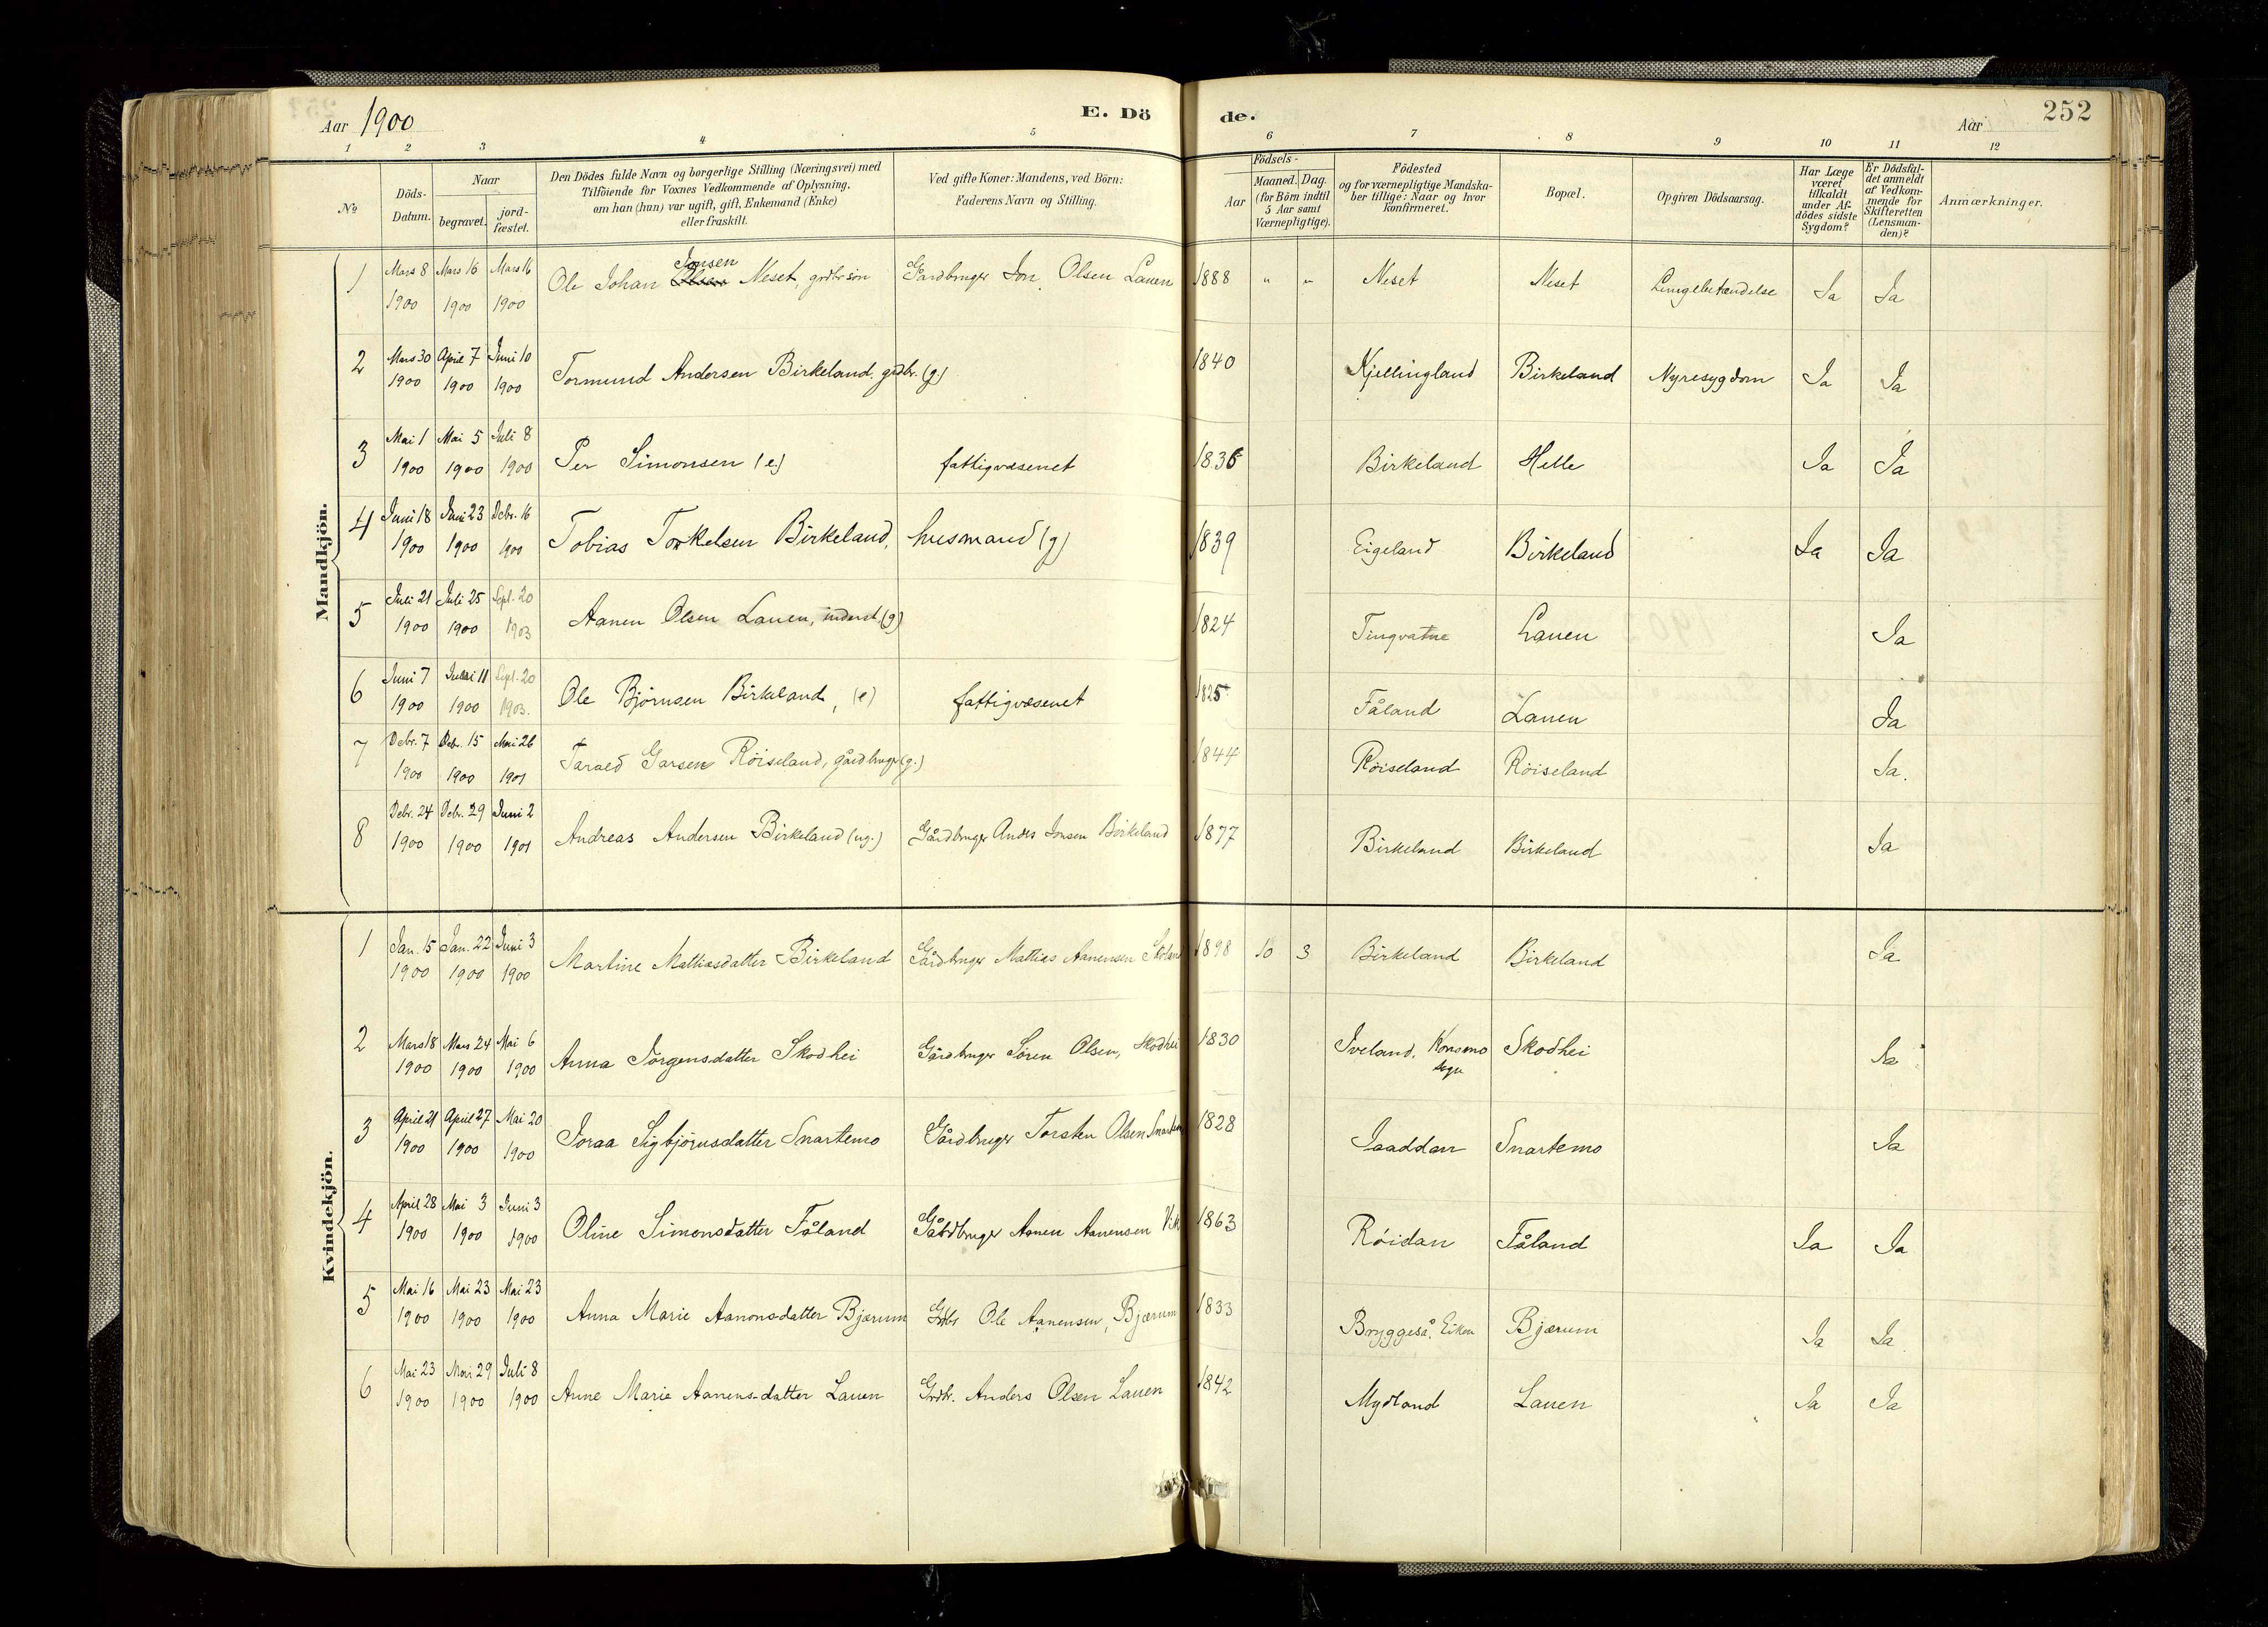 Aar 1900
E. Dö
de.
Aar
252
1 2 3 4 5 6 7 8 9 10 11 12
No
Döds-Datum.
Naar
begravet.
jord-fæstet.
Den Dödes fulde Navn og borgerlige Stilling (Næringsvei) med
Tilföiende for Voxnes Vedkommende af Oplysning,
om han (hun) var ugift, gift, Enkemand (Enke)
eller fraskilt.
Ved gifte Koner: Mandens, ved Börn:
Faderens Navn og Stilling.
Födsels-
Aar
Maaned. Dag.
(for Börn indtil
5 Aar samt
Værnepligtige).
Födested
og for værnepligtige Mandska-
ber tillige: Naar og hvor
konfirmeret.
Bopæl.
Opgiven Dödsaarsag.
Har Læge
været
tilkaldt
under Af-
dödes sidste
Sygdom?
Er Dödsfal-
det anmeldt
af Vedkom-
mende for
Skifteretten
(Lensman-
den)?
Anmærkninger.
Mandkjön.
1 Mars 8 1900 Mars 16 1900 Mars 16 1900 Ole Johan Olsen Jonsen Neset, grdbr søn Gaardbruger Jon Olsen Lauen 1888 " " Neset Neset Lungebetændelse Ja Ja
2 Mars 30 1900 April 7 1900 Juni 10 1900 Tormund Andersen Birkeland, grdbr. (g) 1840 Kjellingland Birkeland Nyresygdom Ja Ja
3 Mai 1 1900 Mai 5 1900 Juli 8 1900 Per Simonsen (e) fattigvæsenet 1836 Birkeland Helle Ja Ja
4 Juni 18 1900 Juni 23 1900 Debr. 16 1900 Tobias Torkelsen Birkeland, husmand (g) 1839 Eigeland Birkeland Ja Ja
5 Juli 21 1900 Juli 25 1900 Sept. 20 1903 Aanen Olsen Lauen, inderst (g) 1824 Tingvatne Lauen Ja
6 Juni 7 1900 Juni 11 1900 Sept. 20 1903. Ole Bjørnsen Birkeland, (e) fattigvæsenet 1825 Fåland Lauen Ja
7 Debr. 7 1900 Debr. 15 1900 Mai 26 1901 Tarald Larsen Røiseland, gårdbruger (g.) 1844 Røiseland Røiseland Ja.
8 Debr. 24 1900 Debr. 29 1900 Juni 2 1901 Andreas Andersen Birkeland (ug.) Gårdbruger Anders Jonsen Birkeland 1877 Birkeland Birkeland Ja
Kvindekjön.
1 Jan. 15 1900 Jan. 22 1900 Juni 3 1900 Martine Mathiasdatter Birkeland Gårdbruger Mathias Aanensen 1898 10 3 Birkeland Birkeland Ja
2 Mars 18 1900 Mars 24 1900 Mai 6 1900 Anna Jørgensdatter Skodhei Gårdbruger Søren Olsen, Skodhei 1830 Iveland, Konsmo sogn Skodhei Ja
3 April 21 1900 April 27 1900 Mai 20 1900 Joraa Sigbjørnsdatter Snartemo Gårdbruger Torsten Olsen Snartemo 1828 Snartemo Ja
4 April 28 1900 Mai 3 1900 Juni 3 1900 Oline Simonsdatter Fåland Gårdbruger Aanen Aanensen 1863 Røidan Fåland Ja Ja
5 Mai 16 1900 Mai 23 1900 Mai 23 1900 Anna Marie Aanonsdatter Bjærum Grdbr Ole Aanensen, Bjærum 1833 Bryggeså, Eiken Bjærum Ja Ja
6 Mai 23 1900 Mai 29 1900 Juli 8 1900 Anne Marie Aanensdatter Lauen Grdbr. Anders Olsen Lauen 1842 Mydland Lauen Ja Ja